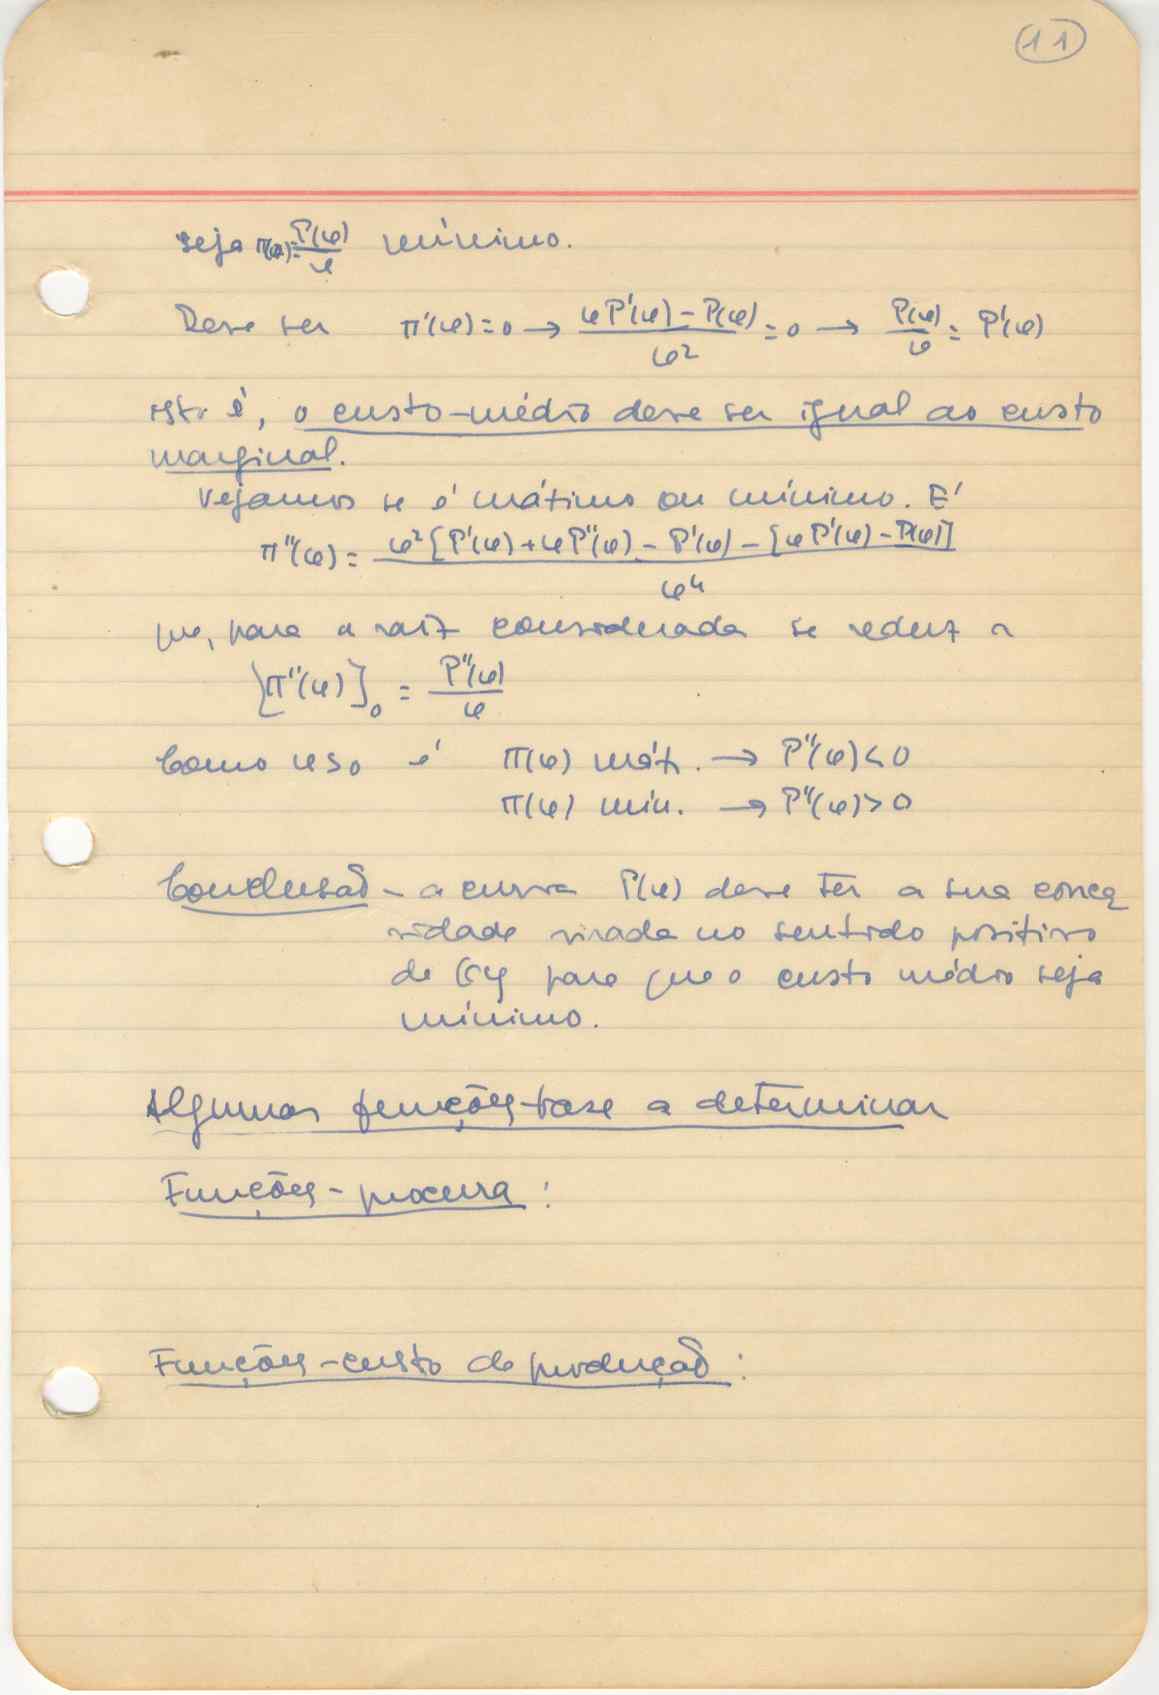 11
seja π(φ)= P(φ)/φ mínimo.
Deve ser π'(φ)=0 → φP'(φ) - P(φ)/φ² = 0 → P(φ)/φ = P'(φ)
isto é, o custo-médio deve ser igual ao custo
marginal.
Vejamos se é máximo ou mínimo. E'
π''(φ) = φ²[P'(φ)+φP''(φ) - P'(φ) - [φP'(φ) - P(φ)]/φ⁴
que, para a raiz considerada se reduz a
[π''(φ)]₀ = P''(φ)/φ
Como é π(φ) máx. → P''(φ)<0
π(φ) mín. → P''(φ)>0
Conclusão - a curva P(φ) deve ter a sua conca
vidade virada no sentido positivo
de Oy para que o custo médio seja
mínimo.
Algumas funções-base a determinar
Funções-procura:
Funções-custo de produção: